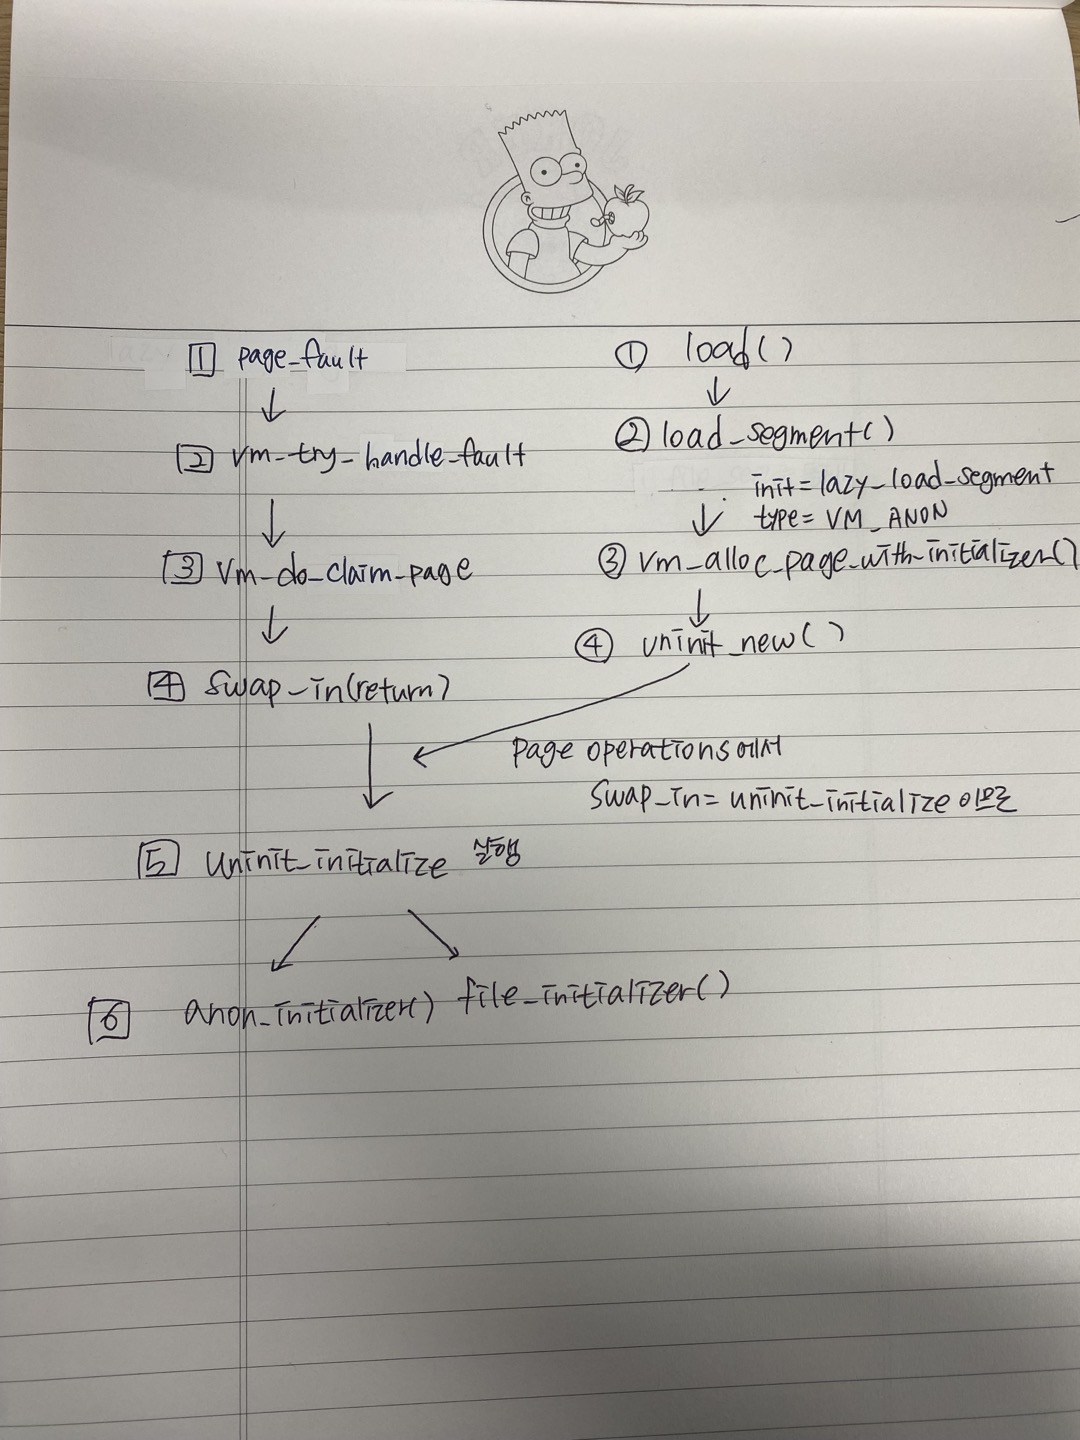 1 page_fault
↓
2 vm_try_handle_fault
↓
3 vm_do_claim_page
↓
4 swap_in(return)
↓
5 uninit_initialize 실행
6 anon_initializer() file_initializer()
① load()
↓
② load_segment()
init=lazy_load_segment
↓ type=VM_ANON
③ vm_alloc_page_with_initializer()
↓
④ uninit_new()
page operations에서
swap_in=uninit_initialize 이므로